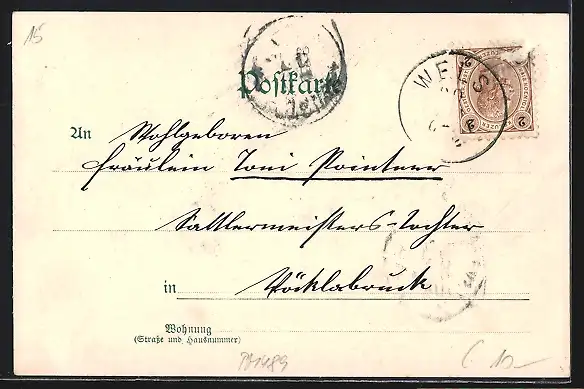 15
Postkarte
WELS
2 2
An Wohlgeboren
Fräulein Toni Pointner
Sattlermeisters-Tochter
in Vöcklabruck
Wohnung
(Straße und Hausnummer)